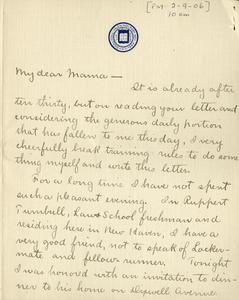 [Pst. 2-9-06]
10 am
My dear Mama —
It is already after
ten thirty, but on reading your letter and
considering the generous daily portion
that has fallen to me this day, I very
cheerfully break training rules to do some
thing myself and write this letter.
For a long time I have not spent
such a pleasant evening. In Ruppert
Turnbull, Law School freshman and
residing here in New Haven, I have a
very good friend, not to speak of Locker-
mate and fellow runner. Tonight
I was honored with an invitation to din-
ner to his home on Dixwell Avenue